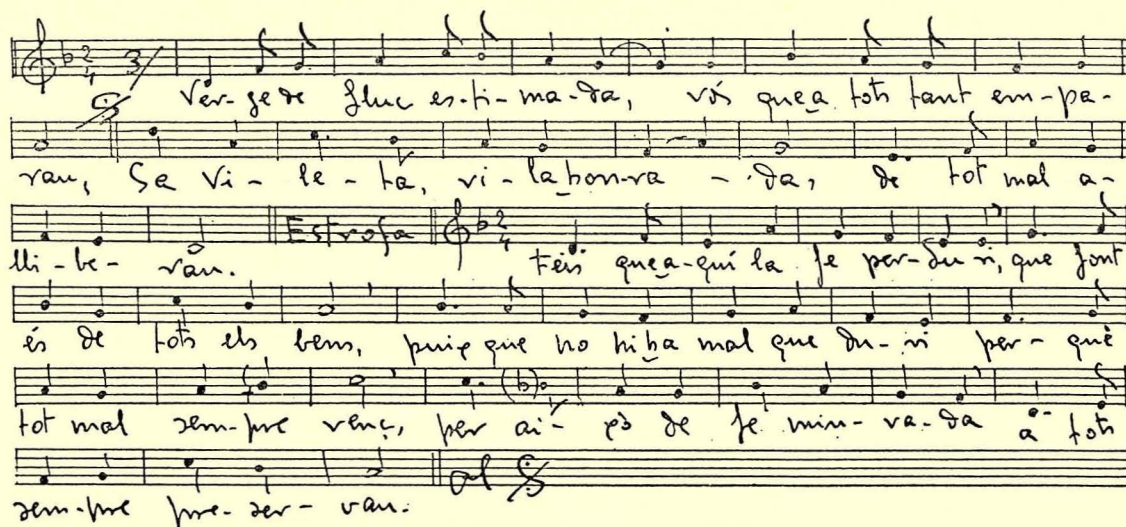 2 4 3
Ver-ge de Lluc es-ti-ma-da, vós que a tots tant em-pa-
rau, Sa Vi-le-ta, vi-la hon-ra-da, de tot mal a-
lli-be-rau.
Estrofa 2 4
Feis que a-quí la fe per-du-ri, que font
és de tots els bens, puix que no hi ha mal que du-ri per-què
(b)
tot mal sem-pre venç, per ai-xò de fe min-va-da a tots
al
sem-pre pre-ser-vau.